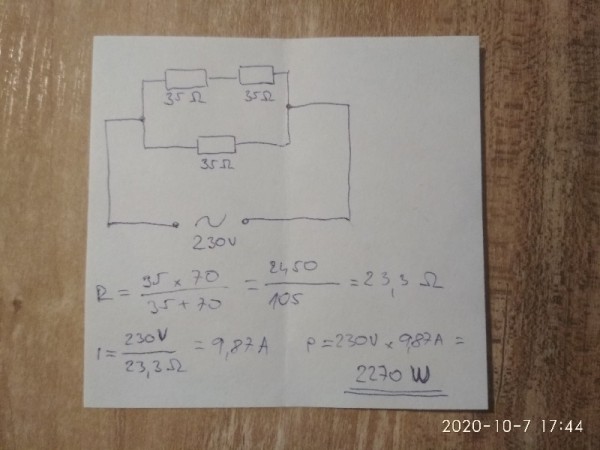 35Ω 35Ω
35Ω
~
230V
R = 35 × 70 / 35 + 70 = 2450 / 105 = 23,3 Ω
I = 230V / 23,3 Ω = 9,87A P = 230V × 9,87A =
2270 W
2020-10-7 17:44